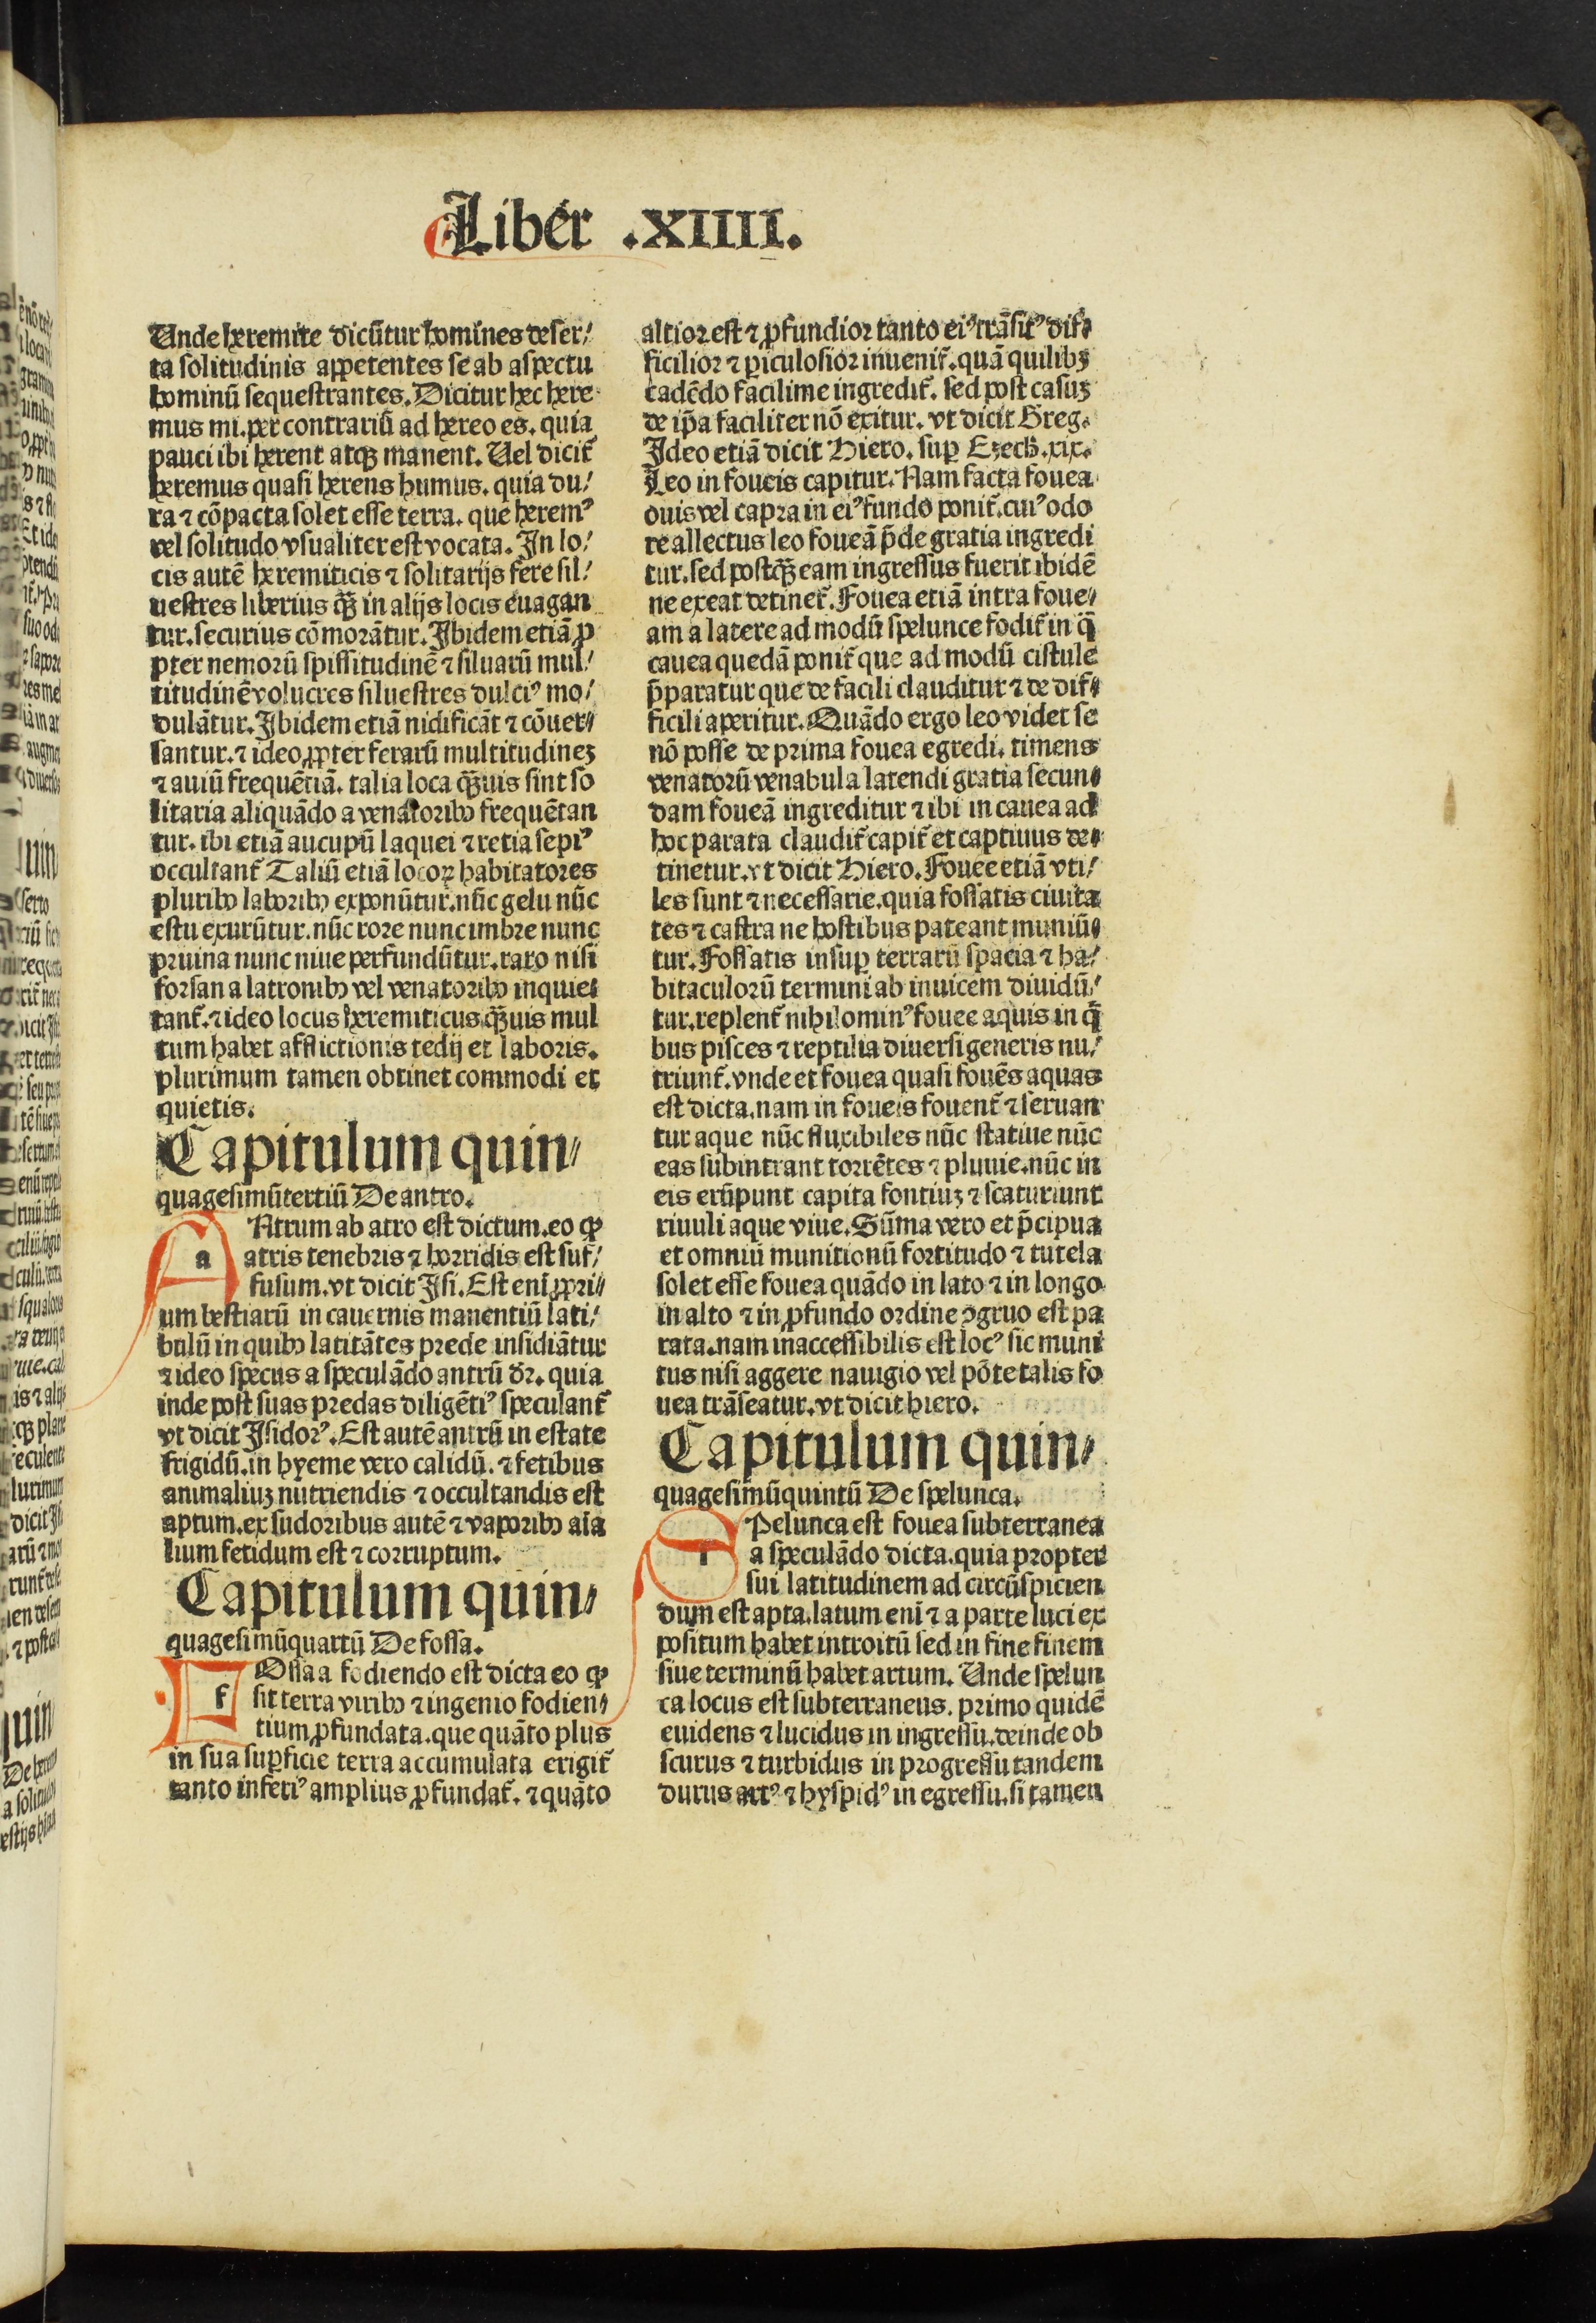 Liber .XIIII.
Unde heremite dicūtur homines deser⸗
ta solitudinis appetentes se ab aspectu
hominū sequestrantes. Dicitur hec here
mus mi. per contrariū ad hereo es. quia
pauci ibi herent atqꝫ manent. Uel dicit̃
heremus quasi herens humus. quia du⸗
ra ⁊ cōpacta solet esse terra. que herem⁹
vel solitudo vsualiter est vocata. In lo⸗
cis autē heremiticis ⁊ solitarijs fere sil⸗
uestres liberius q̄ꝫ in alijs locis euagan
tur. securius cōmorātur. Ibidem etiā ꝓ
pter nemorū spissitudinē ⁊ siluarū mul⸗
titudinē volucres siluestres dulci⁹ mo⸗
dulātur. Ibidem etiā nidificāt ⁊ cōuer⸗
santur. ⁊ ideo ꝓpter ferarū multitudineꝫ
⁊ auiū frequētiā. talia loca q̄ꝫuis sint so
litaria aliquādo a venatoribꝰ frequētan
tur. ibi etiā aucupū laquei ⁊ retia sepi⁹
occultant̃ Taliū etiā locoꝝ habitatores
pluribꝰ laboribꝰ exponūtur. nūc gelu nūc
estu exurūtur. nūc rore nunc imbre nunc
pruina nunc niue perfundūtur. raro nisi
forsan a latronibꝰ vel venatoribꝰ inquie⸗
tant̃. ⁊ ideo locus heremiticus q̄ꝫuis mul
tum habet afflictionis tedij et laboris.
plurimum tamen obtinet commodi et
quietis.
Capitulum quin⸗
quagesimūtertiū De antro.
a Atrum ab atro est dictum. eo ꝙ
atris tenebris ⁊ horridis est suf⸗
fusum. vt dicit Isi. Est eni ̄ꝓpri⸗
um bestiarū in cauernis manentiū lati⸗
bulū in quibꝰ latitātes prede insidiātur
⁊ ideo specus a speculādo antrū dr̄. quia
inde post suas predas diligēti⁹ speculant̃
vt dicit Isidor⁹. Est autē antrū in estate
frigidū. in hyeme vero calidū. ⁊ fetibus
animaliuꝫ nutriendis ⁊ occultandis est
aptum. ex sudoribus autē ⁊ vaporibꝰ aīa
lium fetidum est ⁊ corruptum.
Capitulum quin⸗
quagesimūquartū De fossa.
f Ossa a fodiendo est dicta eo ꝙ
sit terra viribꝰ ⁊ ingenio fodien⸗
tium ꝓfundata. que quāto plus
in sua suꝑficie terra accumulata erigit̃
tanto inferi⁹ amplius ꝓfundat̃. ⁊ quāto
altior est ⁊ ꝓfundior tanto ei⁹ trāsit⁹ dif⸗
ficilior ⁊ ꝑiculosior inuenit̃. quā quilibꝫ
cadēdo facilime ingredit̃. sed post casuꝫ
de ip̄a faciliter nō exitur. vt dicit Greg.
Ideo etiā dicit Hiero. suꝑ Ezech. xix.
Leo in foueis capitur. Nam facta fouea
ouis vel capra in ei⁹ fundo ponit̃. cui⁹ odo
re allectus leo foueā p̄de gratia ingredi
tur. sed postq̄ꝫ eam ingressus fuerit ibidē
ne exeat detinet̃. Fouea etiā intra foue⸗
am a latere ad modū spelunce fodit̃ in q̄
cauea quedā ponit̃ que ad modū cistule
p̄paratur que de facili clauditur ⁊ de dif⸗
ficili aperitur. Quādo ergo leo videt se
nō posse de prima fouea egredi. timens
venatorū venabula latendi gratia secun⸗
dam foueā ingreditur ⁊ ibi in cauea ad
hoc parata claudit̃ capit̃ et captiuus de⸗
tinetur. vt dicit Hiero. Fouee etiā vti⸗
les sunt ⁊ necessarie. quia fossatis ciuita
tes ⁊ castra ne hostibus pateant muniū⸗
tur. Fossatis insuꝑ terrarū spacia ⁊ ha⸗
bitaculorū termini ab inuicem diuidū⸗
tur. replent̃ nihilomin⁹ fouee aquis in q̄
bus pisces ⁊ reptilia diuersi generis nu⸗
triunt̃. vnde et fouea quasi fouēs aquas
est dicta. nam in foueis fouent̃ ⁊ seruan
tur aque nūc fluxibiles nūc statiue nūc
eas subintrant torrētes ⁊ pluuie. nūc in
eis erūpunt capita fontiuꝫ ⁊ scaturiunt
riuuli aque viue. Sūma vero et p̄cipua
et omniū munitionū fortitudo ⁊ tutela
solet esse fouea quādo in lato ⁊ in longo
in alto ⁊ in ꝓfundo ordine ꝯgruo est pa
rata. nam inaccessibilis est loc⁹ sic muni
tus nisi aggere nauigio vel pōte talis fo
uea trāseatur. vt dicit hiero.
Capitulum quin⸗
quagesimūquintū De spelunca.
Pelunca est fouea subterranea
a speculādo dicta. quia propter
sui latitudinem ad circūspicien
dum est apta. latum eni ̄⁊ a parte luci ex
positum habet introitū sed in fine finem
siue terminū habet artum. Unde spelun
ca locus est subterraneus. primo quidē
euidens ⁊ lucidus in ingressu. deinde ob
scurus ⁊ turbidus in progressu tandem
durus art⁹ ⁊ hyspid⁹ in egressu. si tamen